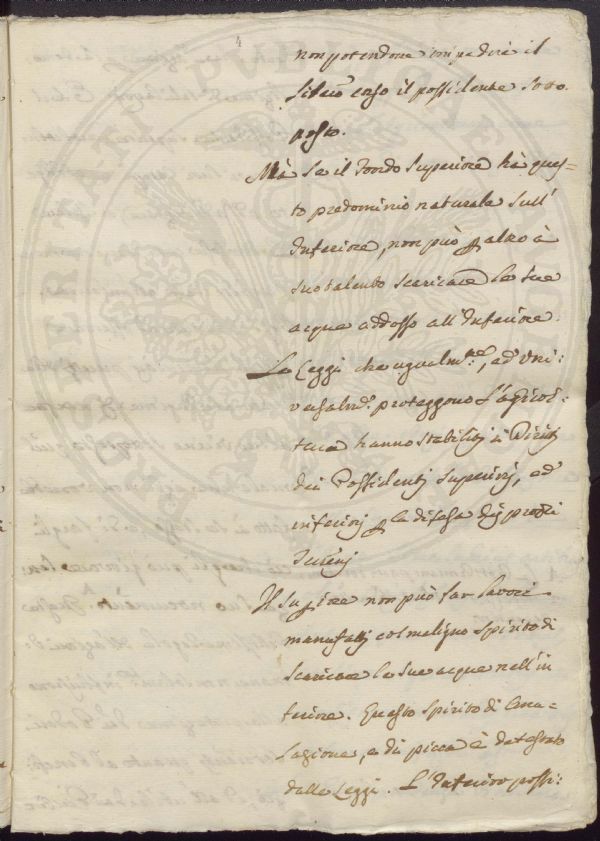 4
non potendone impedire il
libero corso il possidente sotto
posto.
Mà se il Fondo Superiore hà ques-
to predominio naturale sull'
Inferiore, non può p altro à
suo talento scaricare le sue
acque addosso all'Inferiore.
Le Leggi che ugualmte, ed Uni:
versalmte proteggono l'agricol-
tura hanno stabilitj i Diritti
dei Possidentj Superiorj, ed
inferiorj p la difesa dei proprj
Terrenj
Il Supiore non può far lavori
manufattj col maligno spirito di
scaricare le sue acque nell'in
feriore. Questo spirito di Emu-
lazione, e di picca è detestato
dalle Leggi. L'Inferior possi: